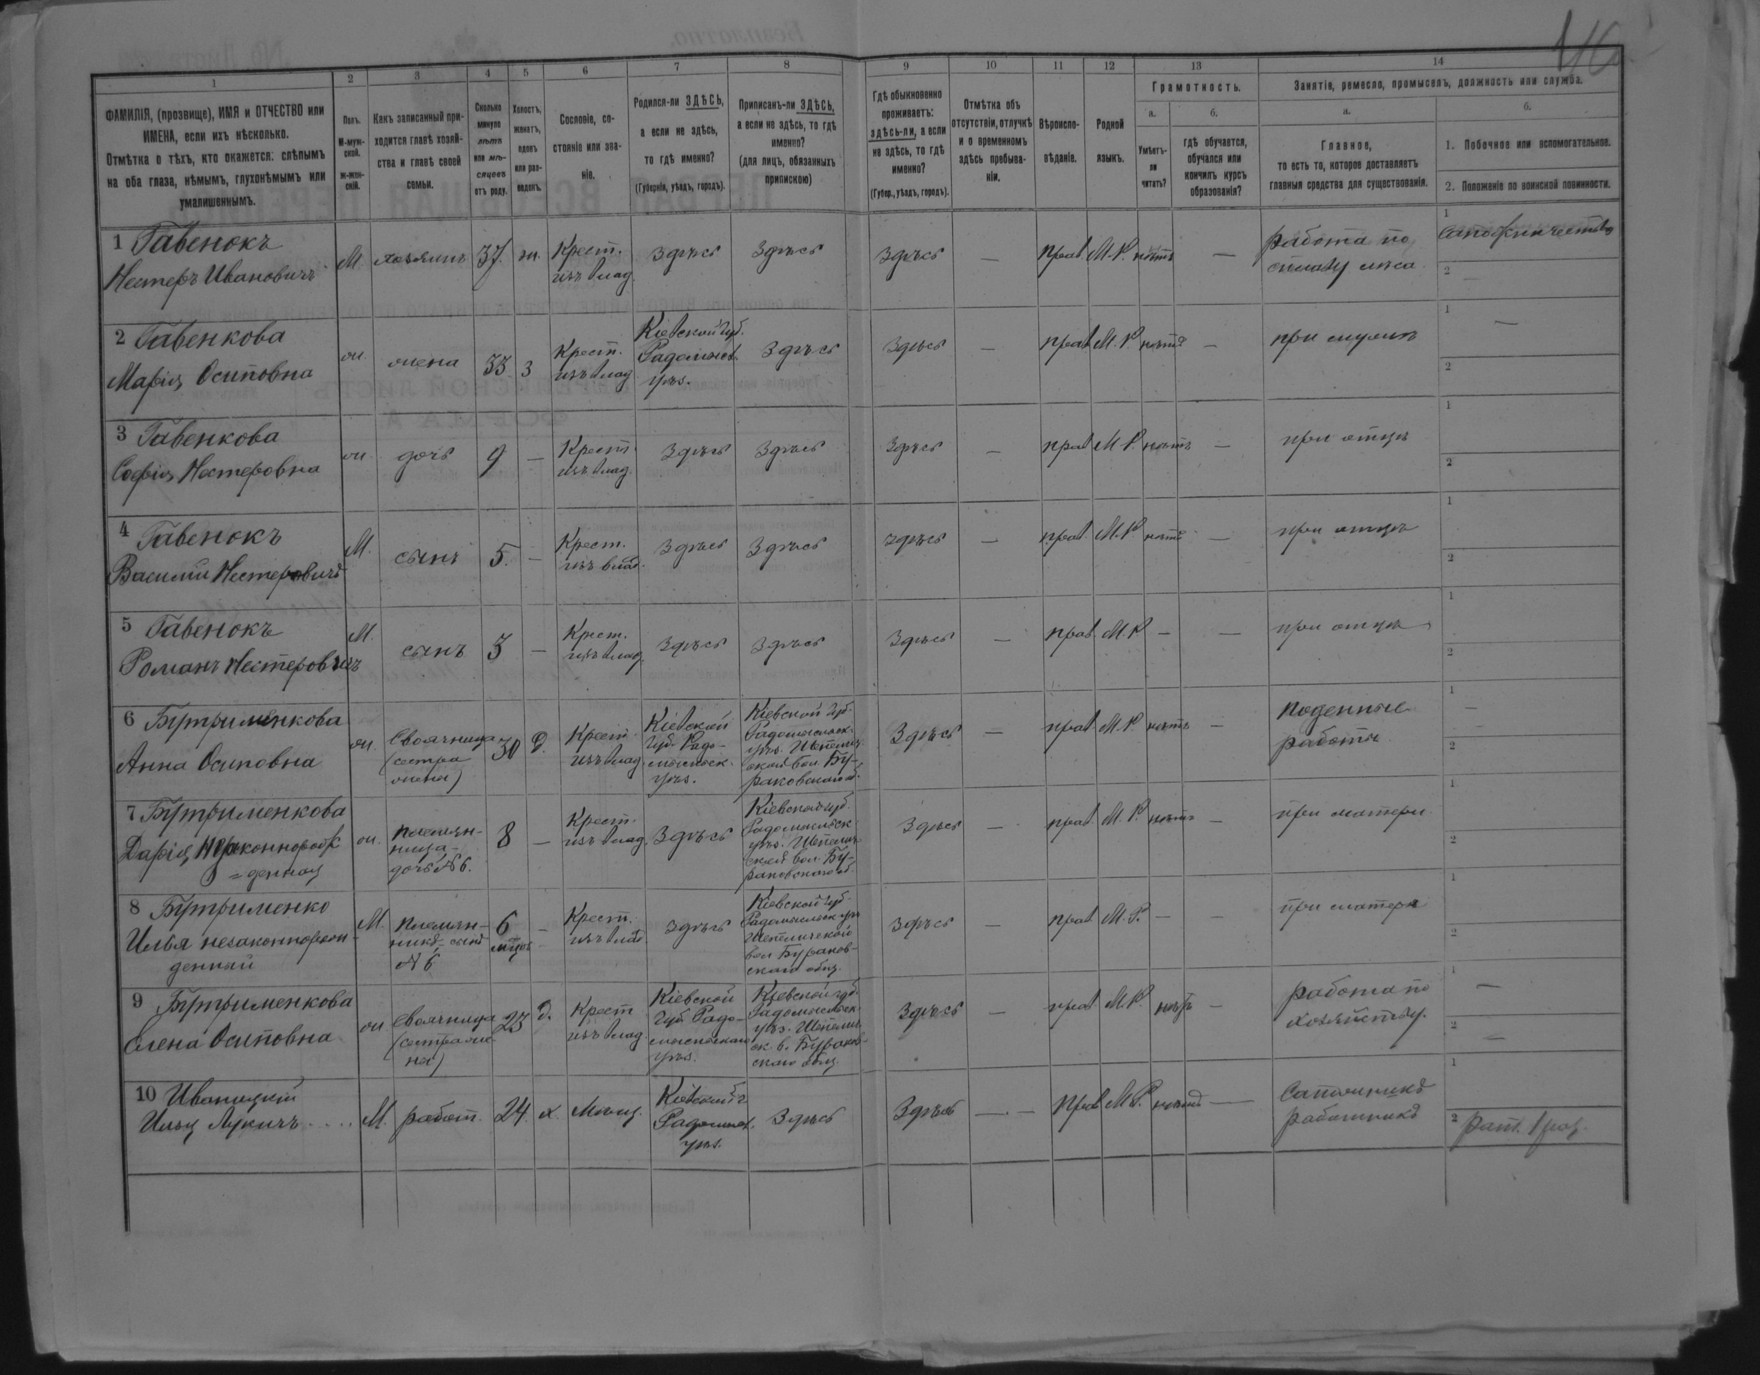 1 2 3 4 5 6 7 8 9 10 11 12 13 14
ФАМИЛІЯ, (прозвище), ИМЯ и ОТЧЕСТВО или
ИМЕНА, если ихъ нѣсколько.
Отмѣтка о тѣхъ, кто окажется: слѣпымъ
на оба глаза, нѣмымъ, глухонѣмымъ или
умалишеннымъ.
Полъ.
М-муж-
ской.
ж-жен-
скій.
Какъ записанный при-
ходится главѣ хозяй-
ства и главѣ своей
семьи.
Сколько
минуло
лѣтъ
или мѣ-
сяцевъ
отъ роду.
Холостъ,
женатъ,
вдовъ
или раз-
веденъ.
Сословіе, со-
стояніе или зва-
ніе.
Родился-ли ЗДѢСЬ,
а если не здѣсь,
то гдѣ именно?
(Губернія, уѣздъ, городъ).
Приписанъ-ли ЗДѢСЬ,
а если не здѣсь, то гдѣ
именно?
(для лицъ, обязанныхъ
припискою)
Гдѣ обыкновенно
проживаетъ:
здѣсь-ли, а если
не здѣсь, то гдѣ
именно?
(Губер., уѣздъ, городъ).
Отмѣтка объ
отсутствіи, отлучкѣ
и о временномъ
здѣсь пребыва-
ніи.
Вѣроиспо-
вѣданіе.
Родной
языкъ.
Грамотность.
а.
Умѣетъ-
ли
читать?
б.
гдѣ обучается,
обучался или
кончилъ курсъ
образованія?
Занятіе, ремесло, промыселъ, должность или служба.
а.
Главное,
то есть то, которое доставляетъ
главныя средства для существованія.
б.
1. Побочное или вспомогательное.
2. Положеніе по воинской повинности.
1 Гавенокъ
Нестеръ Ивановичъ
М. хозяинъ 37 ж.
Крест.
изъ влад.
Здѣсь Здѣсь Здѣсь — прав М.Р. нѣтъ —
работа по
сплаву лѣса
1
2
2 Гавенкова
Марія Осиповна
ж. жена 33 з
Крест.
изъ влад
Кіевской губ.
Радомысл.
уѣз.
Здѣсь Здѣсь — прав М.Р нѣтъ — при мужѣ
1 —
2
3 Гавенкова
Софія Нестеровна
ж. дочь 9 —
Крест
изъ влад.
Здѣсь Здѣсь Здѣсь — прав М.Р. нѣтъ — при отцѣ
1
2
4 Гавенокъ
Василій Нестеровичъ
М. сынъ 5. —
Крест.
изъ влад.
Здѣсь Здѣсь здѣсь — прав. М.Р нѣтъ — при отцѣ
1
2
5 Гавенокъ
Романъ Нестеровичъ
М. сынъ 3 —
Крест.
изъ влад.
Здѣсь здѣсь Здѣсь — прав М.Р — — при отцѣ
1
2
6 Бутрименкова
Анна Осиповна
ж.
Своячница
(сестра
жены)
30 д.
Крест.
изъ влад
Кіевской
губ. Радо-
мысльск.
уѣз.
Кіевской губ.
Радомысльск.
уѣз. Шепелич-
ской вол. Бу-
раковскаго об.
Здѣсь — прав М.Р. нѣтъ —
Поденные
работы
1 —
2 —
7 Бутрименкова
Дарія Незаконорож
=денная
ж.
племян-
ница-
дочь № 6.
8 —
Крест.
изъ влад.
Здѣсь
Кіевской губ
Радомысльск
уѣз. Шепелич-
ской вол. Бу-
раковскаго об.
Здѣсь — прав М.Р. нѣтъ — при матери
1
2
8 Бутрименко
Илья незаконорож-
денный
М.
племян-
никъ, сынъ
№ 6
6
мѣцевъ
—
Крест.
изъ влад
Здѣсь
Кіевской губ.
Радомысльск. уѣз
Шепеличской
вол Бураков-
скаго общ.
Здѣсь — прав М.Р. — — при матери
1
2
9 Бутрименкова
Елена Осиповна
ж
Своячница
(сестра же
ны)
23 д.
Крест
изъ влад
Кіевской
губ Радо-
мысльскаго
уѣз.
Кіевской губ.
Радомысльск
уѣз. Шепелич-
ск в. Бураков-
скаго общ.
Здѣсь — прав М.Р. нѣтъ —
работа по
хозяйству.
1 —
2 —
10 Иваницкій
Илья Лукичъ
М. работ. 24 х. Мѣщ.
Кіевской г
Радомысл.
уѣз.
Здѣсь Здѣсь — — Прав М.Р. нѣтъ —
Сапожникъ
работникъ
1
2 рат. 1 раз.